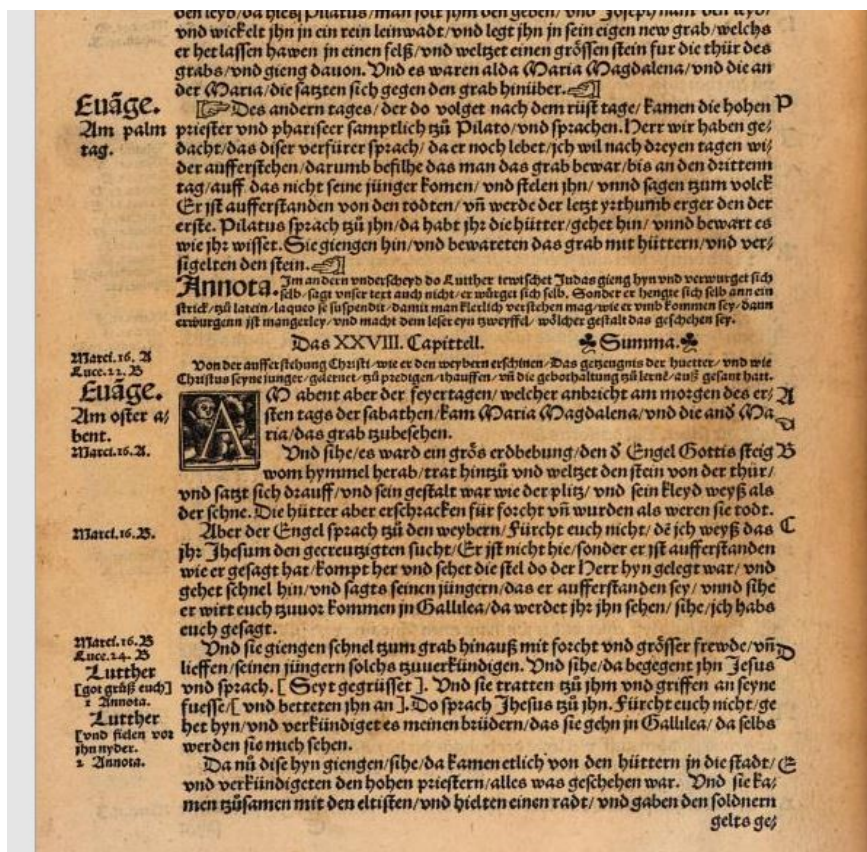 den leyb/da hieß Pilatus/man solt jhm den geben/ vnd Joseph nam den leyb/
vnd wickelt jhn in ein rein leinwadt/vnd legt jhn in sein eigen new grab/welchs
er het lassen hawen in einen felß/vnd weltzet einen grössen stein fur die thür des
grabs/vnd gieng dauon. Vnd es waren alda Maria Magdalena/vnd die an
der Maria/die satzten sich gegen den grab hinüber.☜]
Euāge.
Am palm
tag.
[☞Des andern tages/der do volget nach dem rüst tage/kamen die hohen P
priester vnd phariseer samptlich tzů Pilato/vnd sprachen. Herr wir haben ge/
dacht/das diser verfürer sprach/ da er noch lebet/jch wil nach dreyen tagen wi/
der aufferstehen/darumb befilhe das man das grab bewar/bis an den drittenn
tag/auff das nicht seine jünger komen/ vnd stelen jhn/ vnnd sagen tzum volck
Er jst aufferstanden von den todten/ vñ werde der letzt yrthumb erger den der
erste. Pilatus sprach tzů jhn/da habt jhr die hütter/gehet hin/ vnnd bewart es
wie jhr wisset. Sie giengen hin/vnd bewareten das grab mit hüttern/vnd ver/
sigelten den stein.☜]
Annota. Im andern vnderscheyd do Lutther tewtschet Judas gieng hyn vnd verwurget sich
selb/sagt vnser text auch nicht/er würget sich selb. Sonder er hengte sich selb ann ein
strick/tzů latein/laqueo se suspendit/damit man klerlich verstehen mag/wie er vmb kommen sey/dann
erwurgenn jst mangerley/vnd macht dem leser eyn tzweyffel/ wölcher gestalt das geschehen sey.
Das XXVIII. Capittell. ☙Summa.☙
Marci.16. A
Luce.22. B
Von der aufferstehung Christi/wie er den weybern erschinen/Das getzeugnis der huetter/ vnd wie
Christus seyne junger/gelernet/tzů predigen/thauffen/ vñ die gebothaltung tzů lernē/auß gesant hatt.
Euāge.
Am oster a/
bent.
Marci.16.A.
AM abent aber der feyertagen/ welcher anbricht am morgen des er/ A
sten tags der sabathen/kam Maria Magdalena/vnd die and Ma
ria/das grab tzubesehen.
Vnd sihe/es ward ein grös erdbebung/den d Engel Gottis steig B
wom hymmel herab/trat hintzů vnd weltzet den stein von der thür/
vnd satzt sich drauff/vnd sein gestalt war wie der plitz/ vnd sein kleyd weyß als
der schne. Die hütter aber erschracken für forcht vñ wurden als weren sie todt.
Marci.16.B.
Aber der Engel sprach tzů den weybern/Fürcht euch nicht/ dē jch weyß das C
jhr Jhesum den gecreutzigten sucht/Er jst nicht hie/sonder er jst aufferstanden
wie er gesagt hat/kompt her vnd sehet die stel do der Herr hyn gelegt war/ vnd
gehet schnel hin/vnd sagts seinen jüngern/das er aufferstanden sey/ vnnd sihe
er wirt euch tzuuor kommen jn Gallilea/da werdet jhr jhn sehen/ sihe/jch habs
euch gesagt.
Marci.16.B
Luce.24. B
Lutther
[got grüß euch]
1 Annota.
Lutther
[vnd fielen vor
jhn nyder.
2 Annota.
Vnd sie giengen schnel tzum grab hinauß mit forcht vnd grösser frewde/vñ D
lieffen/seinen jüngern solchs tzuuerkündigen. Vnd sihe/da begegent jhn Jesus
vnd sprach. [ Seyt gegrüsset ]. Vnd sie tratten tzů jhm vnd griffen an seyne
fuesse/[ vnd betteten jhn an ]. Do sprach Jhesus tzů jhn. Fürcht euch nicht/ge
het hyn/vnd verkündiget es meinen brüdern/das sie gehn in Gallilea/ da selbs
werden sie mich sehen.
Da nů dise hyn giengen/sihe/da kamen etlich von den hüttern jn die stadt/ E
vnd verkündigeten den hohen priestern/alles was geschehen war. Vnd sie ka/
men tzůsamen mit den eltisten/vnd hielten einen radt/ vnd gaben den soldnern
gelts ge/